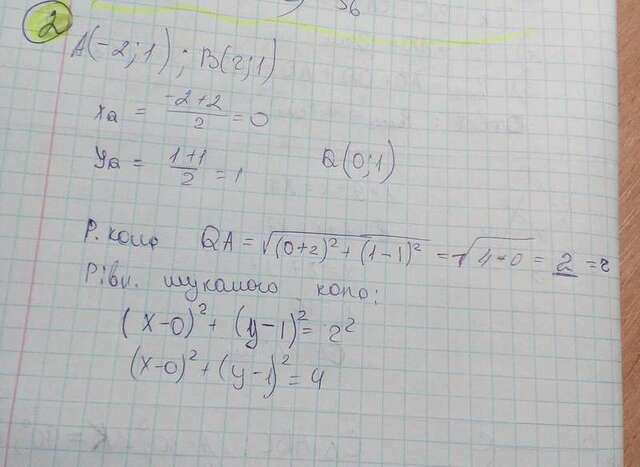 56
2
A(-2;1); B(2;1)
xa = (-2+2)/2 = 0
ya = (1+1)/2 = 1 Q(0;1)
Р. кола QA = √((0+2)²+(1-1)²) = √(4-0) = 2 = r
Рівн. шуканого кола:
(x-0)²+(y-1)² = 2²
(x-0)²+(y-1)² = 4